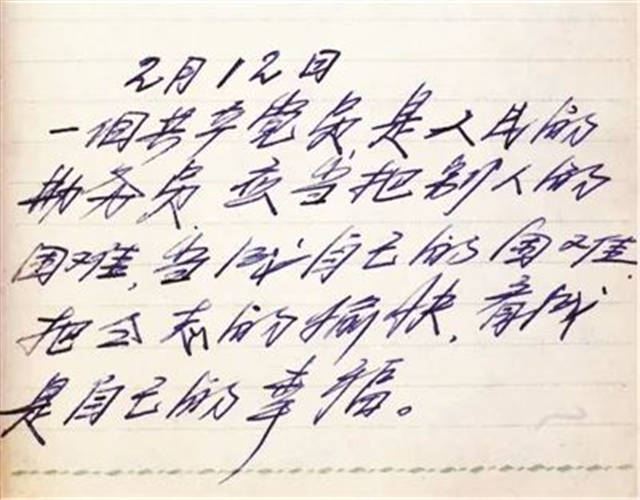 2月12日
一个共产党员是人民的
勤务员,应当把别人的
困难,当成自己的困难.
把同志的愉快,看成
是自己的幸福。